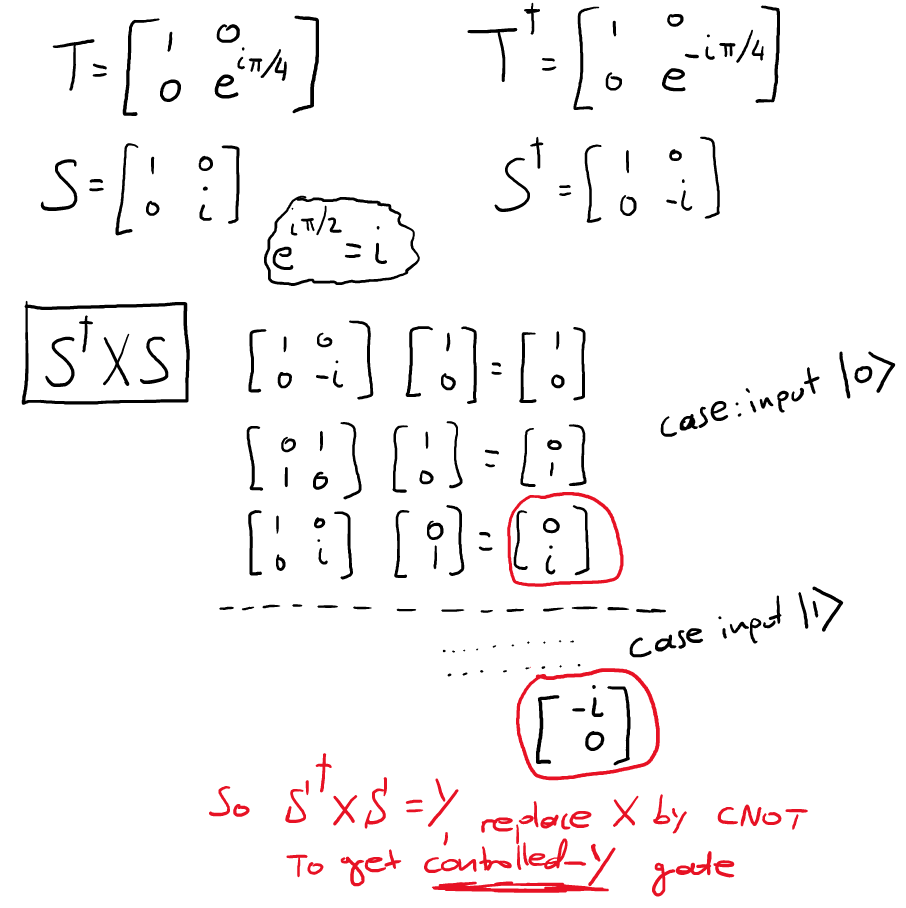 T = [ 1 0 ; 0 e^{iπ/4} ]    T† = [ 1 0 ; 0 e^{-iπ/4} ]
S = [ 1 0 ; 0 i ]    S† = [ 1 0 ; 0 -i ]
e^{iπ/2} = i
S†XS
[ 1 0 ; 0 -i ] [ 1 ; 0 ] = [ 1 ; 0 ]
case: input |0>
[ 0 1 ; 1 0 ] [ 1 ; 0 ] = [ 0 ; 1 ]
[ 1 0 ; 0 i ] [ 0 ; 1 ] = [ 0 ; i ]
case input |1>
[ -i ; 0 ]
So S†XS = Y, replace X by CNOT
To get controlled-Y gate